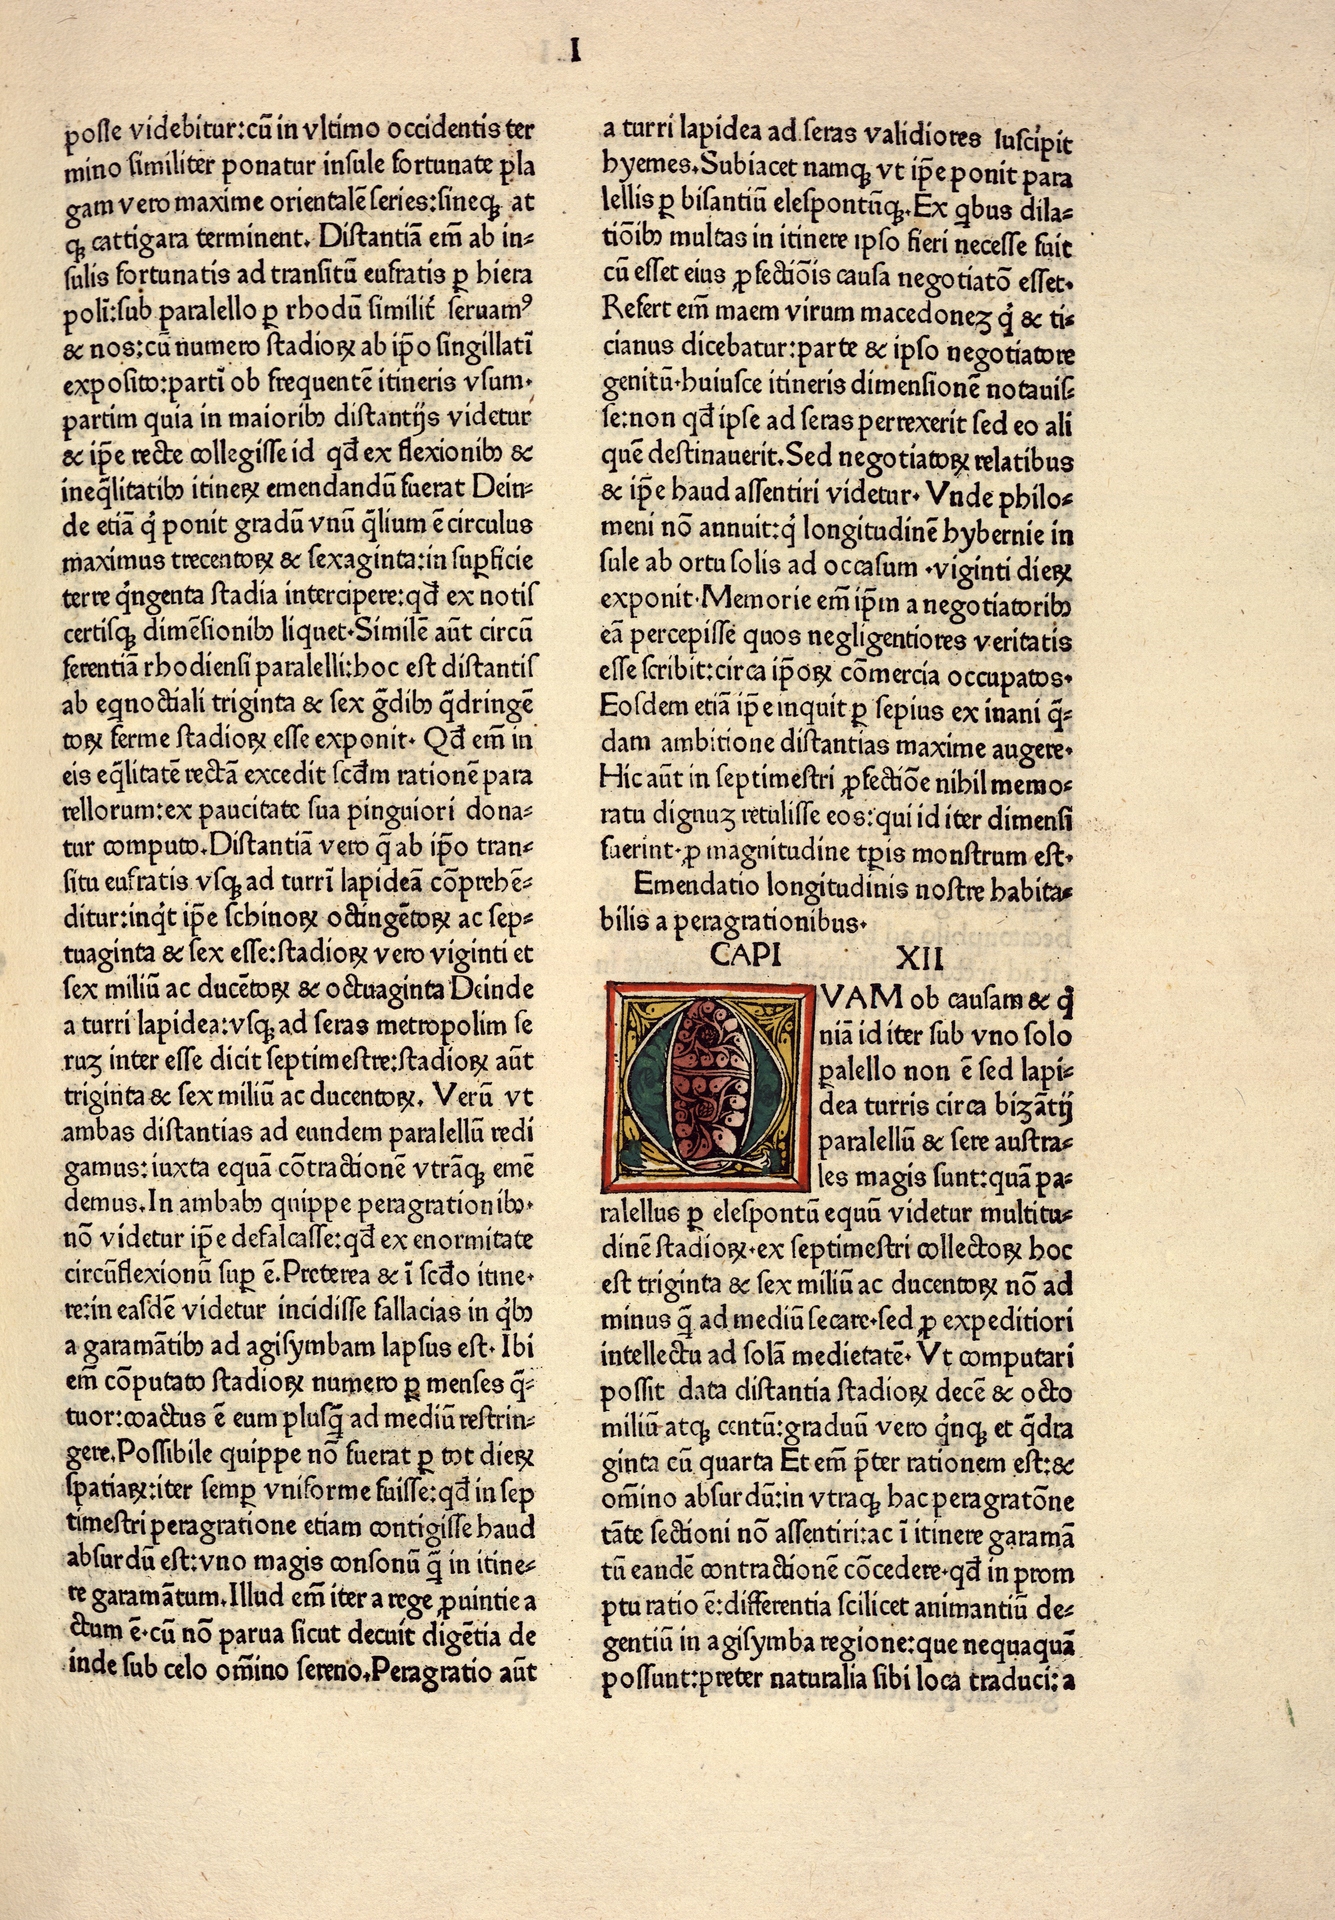 I
posse videbitur:cū in vltimo occidentis ter
mino similiter ponatur insule fortunate pla
gam vero maxime orientalē series:sineqꝫ at
qꝫ cattigara terminent. Distantiā em̄ ab in⸗
sulis fortunatis ad transitū eufratis ꝑ hiera
poli:sub paralello ꝑ rhodū similit̄ seruamꝰ
& nos:cū numero stadioꝝ ab ip̄o singillatī
exposito:partī ob frequentē itineris vsum.
partim quia in maioribꝫ distantijs videtur
& ip̄e recte collegisse id qd̄ ex flexionibꝫ &
ineq̄litatibꝫ itineꝝ emendandū fuerat Dein⸗
de etiā qͥ ponit gradū vnū q̄lium ē circulus
maximus trecentoꝝ & sexaginta:in suꝑficie
terre qͥngenta stadia intercipere:qd̄ ex notis
certisqꝫ dimēsionibꝫ liquet.Similē aūt circū
ferentiā rhodiensi paralelli:hoc est distantis
ab eqnoctiali triginta & sex ḡdibꝫ q̄dringē
toꝝ ferme stadioꝝ esse exponit. Qd̄ em̄ in
eis eq̄litatē rectā excedit scd̄m rationē para
rellorum:ex paucitate sua pinguiori dona⸗
tur computo.Distantiā vero q̄ ab ip̄o tran⸗
situ eufratis vsqꝫ ad turrī lapideā cōprehē⸗
ditur:inqͥt ip̄e schinoꝝ octingētoꝝ ac sep⸗
tuaginta & sex esse:stadioꝝ vero viginti et
sex miliū ac ducētoꝝ & octuaginta Deinde
a turri lapidea:vsqꝫ ad seras metropolim se
ruꝫ inter esse dicit septimestre:stadioꝝ aūt
triginta & sex miliū ac ducentoꝝ. Verū vt
ambas distantias ad eundem paralellū redi
gamus:iuxta equā cōtractionē vtrāqꝫ emē
demus.In ambabꝫ quippe peragrationibꝫ.
nō videtur ip̄e defalcasse:qd̄ ex enormitate
circūflexionū suꝑ ē.Preterea & ī scd̄o itine⸗
re:in easdē videtur incidisse fallacias in qͥbꝫ
a garamātibꝫ ad agisymbam lapsus est. Ibi
em̄ cōputato stadioꝝ numero ꝑ menses q̄⸗
tuor:coactus ē eum plusq̄ ad mediū restrin⸗
gere.Possibile quippe nō fuerat ꝑ tot dieꝝ
spatiaꝝ:iter semꝑ vniforme fuisse:qd̄ in sep
timestri peragratione etiam contigisse haud
absurdū est:vno magis consonū q̄ in itine⸗
re garamātum.Illud em̄ iter a rege ꝓuintie a
ctum ē.cū nō parua sicut decuit digētia de
inde sub celo om̄ino sereno.Peragratio aūt
a turri lapidea ad seras validiores suscipit
hyemes.Subiacet namqꝫ vt ip̄e ponit para
lellis ꝑ bisantiū elespontūqꝫ.Ex qͥbus dila⸗
tiōibꝫ multas in itinere ipso fieri necesse fuit
cū esset eius ꝓfectiōis causa negotiatō esset.
Refert em̄ maem virum macedoneꝫ qͥ & ti⸗
cianus dicebatur:parte & ipso negotiatore
genitū.huiusce itineris dimensionē notauis⸗
se:non qd̄ ipse ad seras perrexerit sed eo ali
quē destinauerit.Sed negotiatoꝝ relatibus
& ip̄e haud assentiri videtur. Vnde philo⸗
meni nō annuit:qͥ longitudinē hybernie in
sule ab ortu solis ad occasum .viginti dieꝝ
exponit.Memorie em̄ ip̄m a negotiatoribꝫ
eā percepisse quos negligentiores veritatis
esse scribit:circa ip̄oꝝ cōmercia occupatos.
Eosdem etiā ip̄e inquit ꝑ sepius ex inani q̄⸗
dam ambitione distantias maxime augere.
Hic aūt in septimestri ꝓfectiōe nihil memo⸗
ratu dignuꝫ retulisse eos:qui id iter dimensi
fuerint.ꝓ magnitudine tp̄is monstrum est.
Emendatio longitudinis nostre habita⸗
bilis a peragrationibus.
CAPI XII
QVAM ob causam & qͥ
niā id iter sub vno solo
ꝑalello non ē sed lapi⸗
dea turris circa bizātij
paralellū & sere austra⸗
les magis sunt:quā pa⸗
ralellus ꝑ elespontū equū videtur multitu⸗
dinē stadioꝝ.ex septimestri collectoꝝ hoc
est triginta & sex miliū ac ducentoꝝ nō ad
minus q̄ ad mediū secare.sed ꝓ expeditiori
intellectu ad solā medietatē. Vt computari
possit data distantia stadioꝝ decē & octo
miliū atqꝫ centū:graduū vero qͥnqꝫ et q̄dra
ginta cū quarta Et em̄ p̄ter rationem est:&
om̄ino absurdū:in vtraqꝫ hac peragratōne
tāte sectioni nō assentiri:ac ī itinere garamā
tū eandē contractionē cōcedere.qd̄ in prom
ptu ratio ē:differentia scilicet animantiū de⸗
gentiū in agisymba regione:que nequaquā
possunt:preter naturalia sibi loca traduci:a